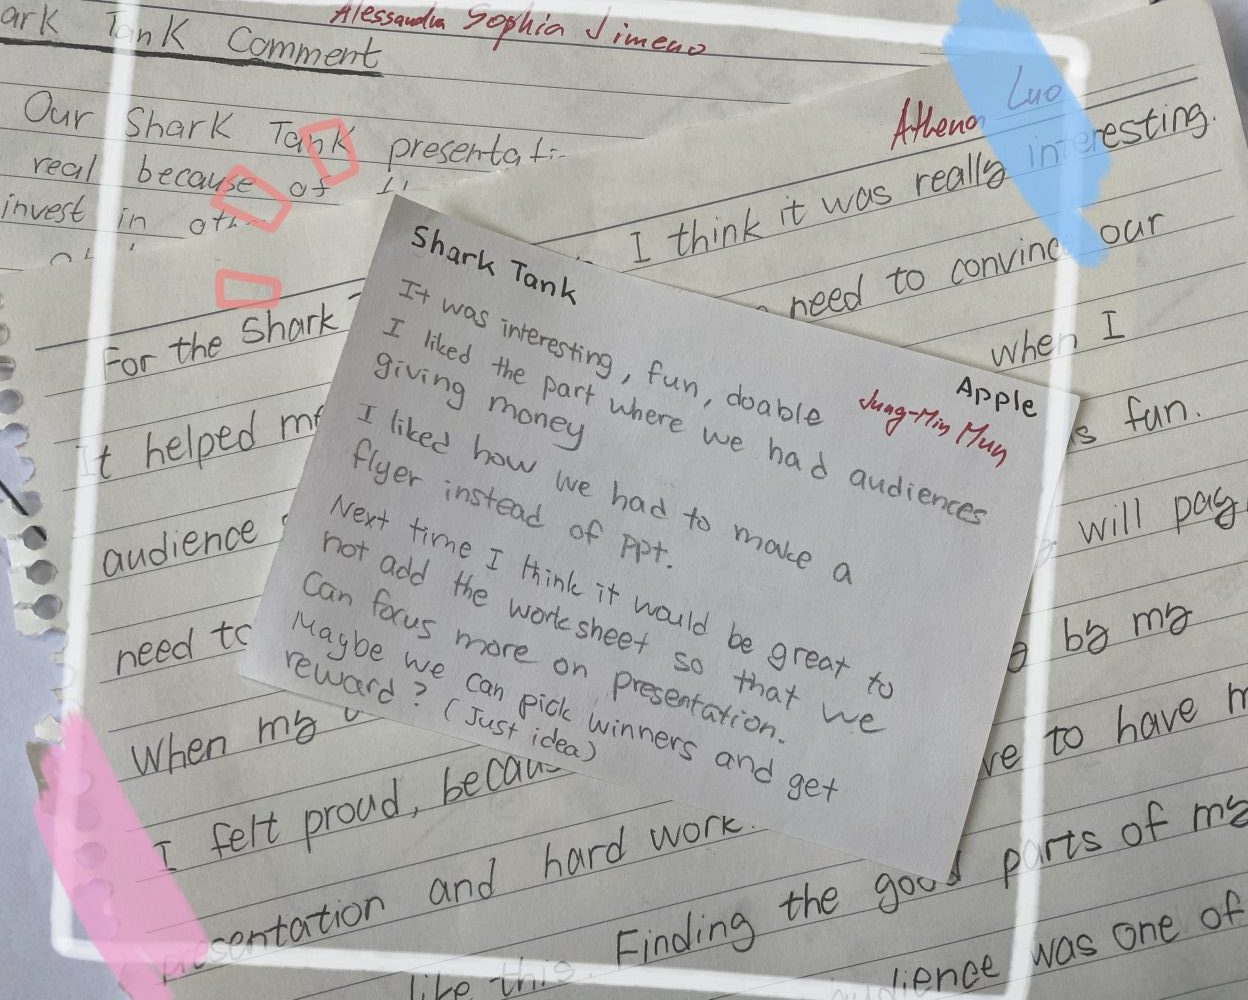 ark Tank Comment
Alessandra Sophia Jimeno
Our Shark Tank presentati
real because of
invest in oth
Athena Luo
I think it was really interesting.
need to convince our
For the Shark
when I
It helped
is fun.
audience
will pay
need to
by my
When my
ve to have
I felt proud, becau
presentation and hard work.
Finding the good parts of my
like this.
dience was one of
Shark Tank
Apple
Jung-Min Mun
It was interesting, fun, doable
I liked the part where we had audiences
giving money
I liked how we had to make a
flyer instead of PPt.
Next time I think it would be great to
not add the worksheet so that we
can focus more on presentation.
Maybe we can pick winners and get
reward? (Just idea)